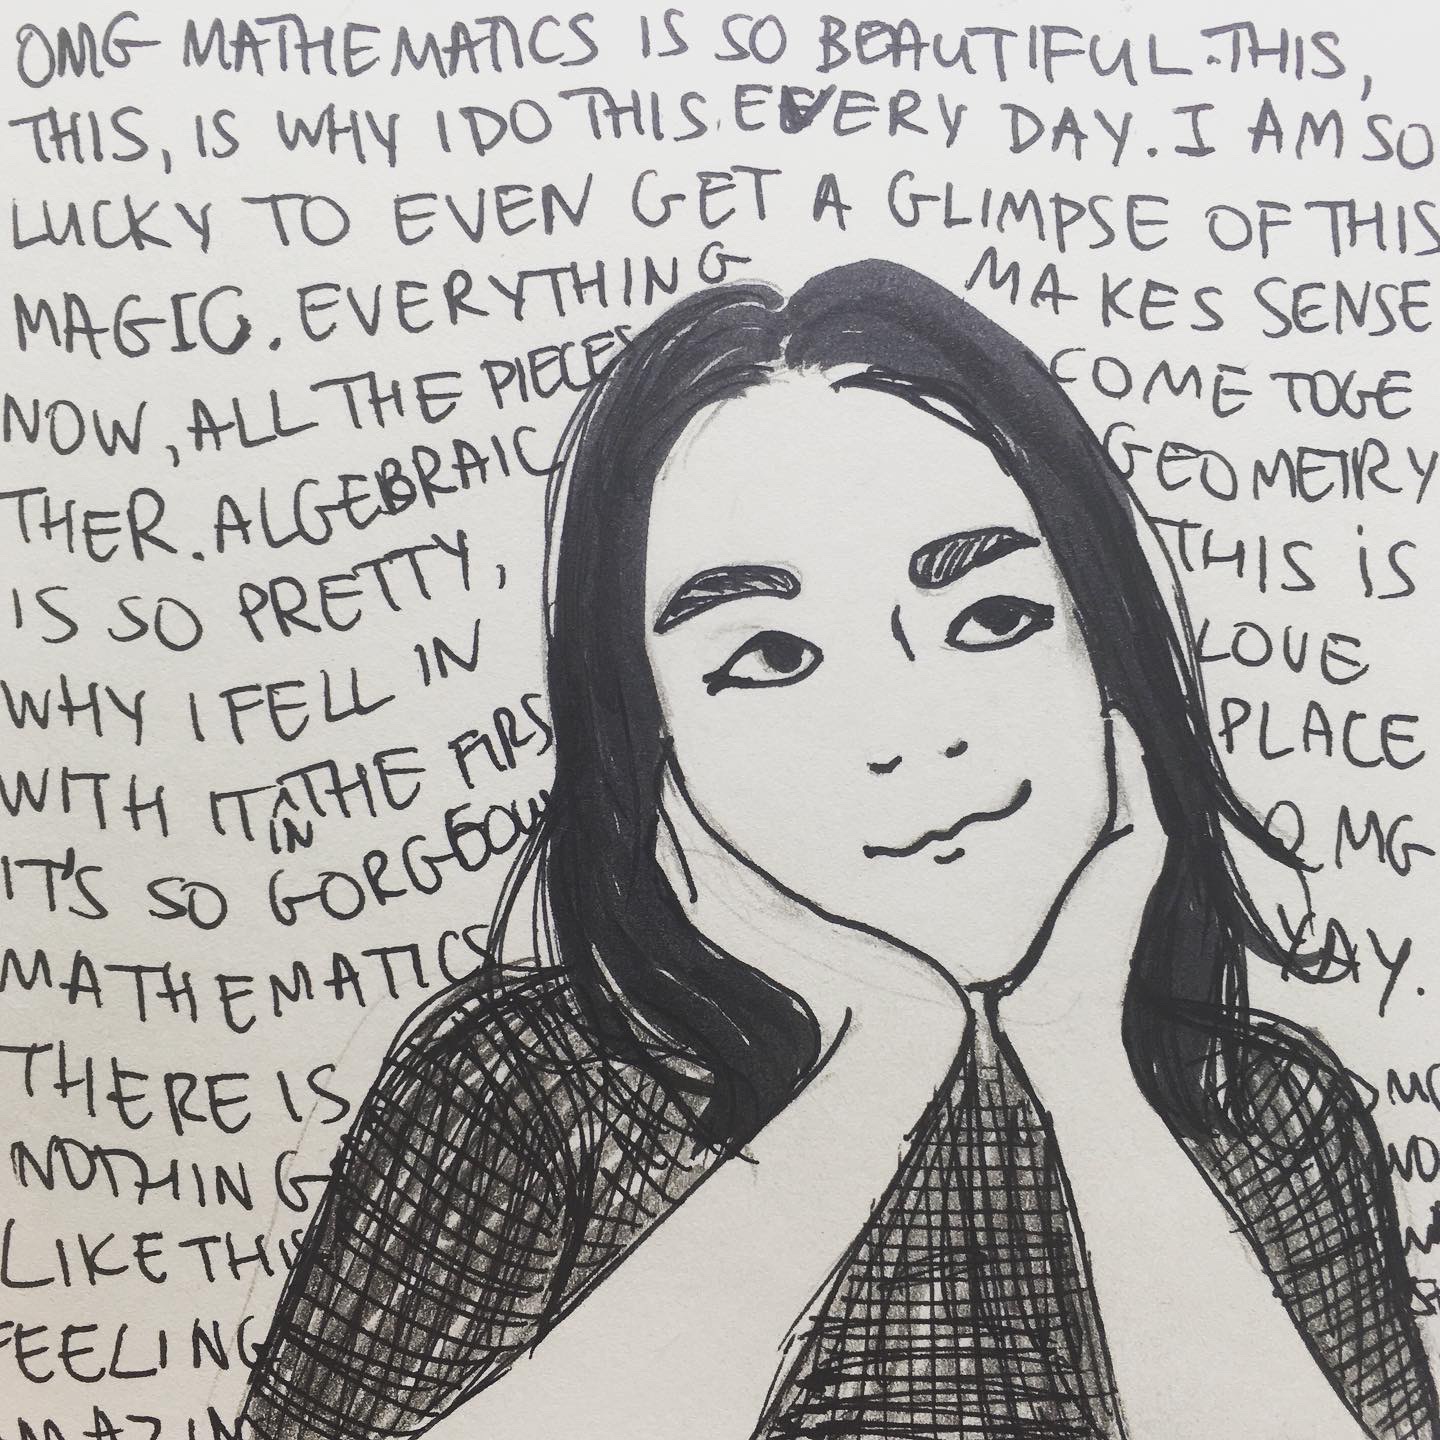 OMG MATHEMATICS IS SO BEAUTIFUL. THIS,
THIS, IS WHY I DO THIS. EVERY DAY. I AM SO
LUCKY TO EVEN GET A GLIMPSE OF THIS
MAGIC. EVERYTHING MAKES SENSE
NOW, ALL THE PIECES COME TOGE
THER. ALGEBRAIC GEOMETRY
IS SO PRETTY, THIS iS
WHY I FELL IN LOVE
WITH IT IN THE FIRS PLACE
IT'S SO GORGEOUS OMG
MATHEMATICS YAY.
THERE IS
NOTHING
LIKE THIS
FEELING